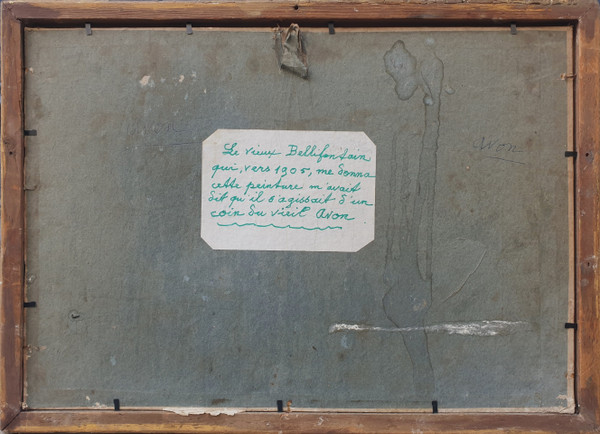 Le vieux Bellifontain
qui, vers 1905, me donna
cette peinture m'avait
dit qu'il s'agissait d'un
coin du vieil Avon.
Avon